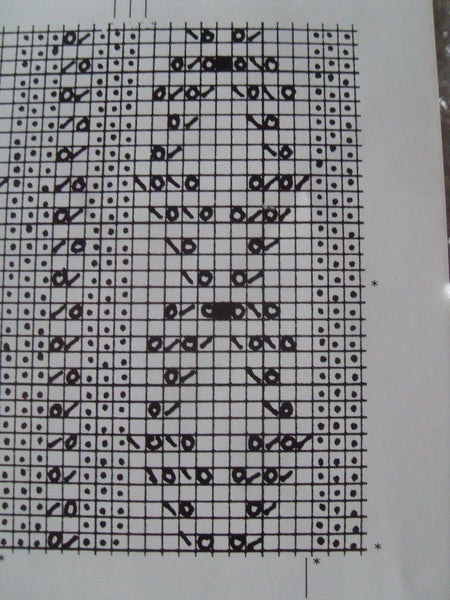 *
*
* *